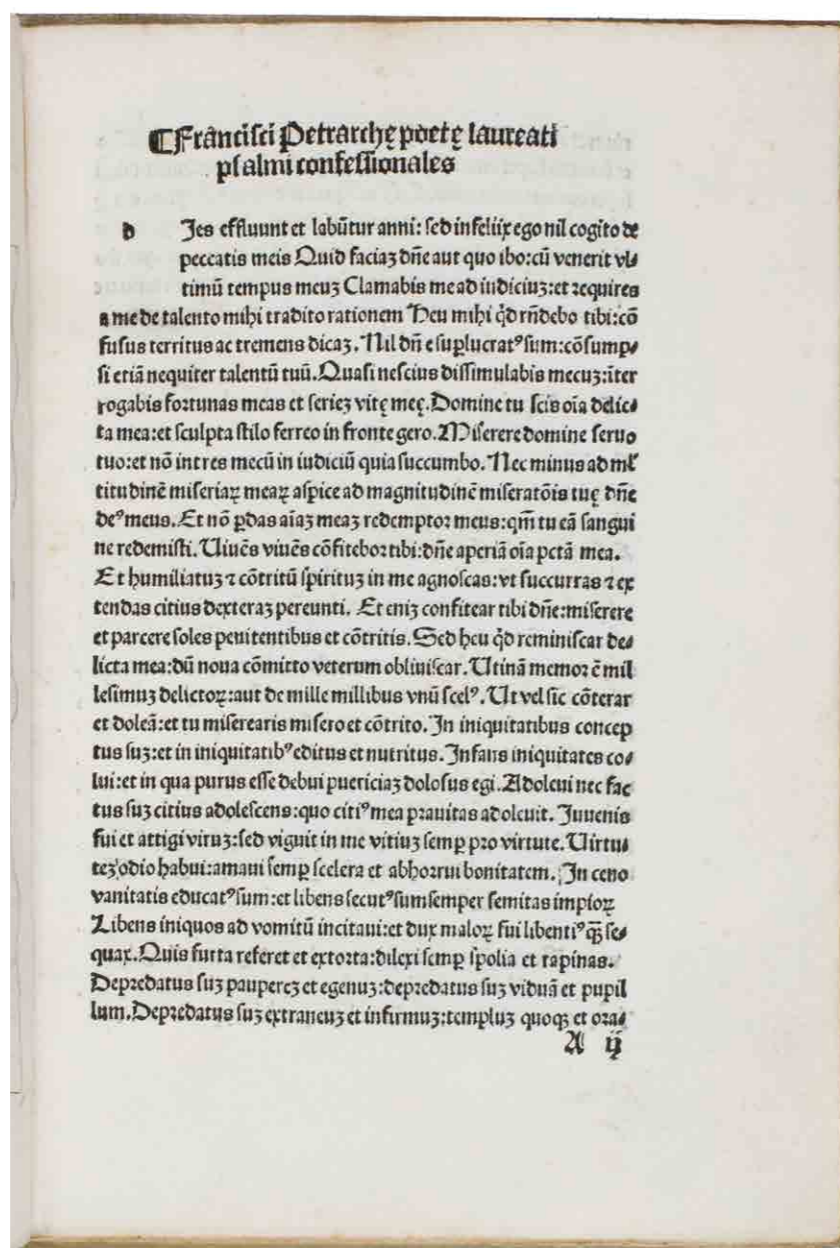 ¶Frãncisci Petrarchę poetę laureati
psalmi confessionales
d Ies effluunt et labũtur anni: sed infeliix ego nil cogito de
peccatis meis Quid faciaʒ dñe aut quo ibo:cũ venerit vl⸗
timũ tempus meuʒ Clamabis me ad iudiciuʒ:et requires
a me de talento mihi tradito rationem Heu mihi q̇d rñdebo tibi:cõ
fusus territus ac tremens dicaʒ. Nil dñ e suꝑlucratꝰsum:cõsump⸗
si etiã nequiter talentũ tuũ. Quasi nescius dissimulabis mecuʒ:ĩter
rogabis fortunas meas et serieʒ vitę meę. Domine tu scis oĩa delic⸗
ta mea:et sculpta stilo ferreo in fronte gero. Miserere domine seruo
tuo:et nõ intres mecũ in iudiciũ quia succumbo. Nec minus ad ml̃
titudinẽ miseriaꝝ meaꝝ aspice ad magnitudinẽ miseratõis tuę dñe
deꝰmeus. Et nõ ꝑdas aĩaʒ meaʒ redemptor meus:qm̃ tu eã sangui
ne redemisti. Uiuẽs viuẽs cõfitebor tibi:dñe aperiã oĩa pctã mea.
Et humiliatuʒ ⁊ cõtritũ spirituʒ in me agnoscas:vt succurras ⁊ ex
tendas citius dexteraʒ pereunti. Et eniʒ confitear tibi dñe:miserere
et parcere soles penitentibus et cõtritis. Sed heu q̇d reminiscar de⸗
licta mea:dũ noua cõmitto veterum obliuiscar. Utinã memor ẽ mil
lesimuʒ delictoꝝ:aut de mille millibus vnũ scelꝰ. Ut vel sic cõterar
et doleã:et tu miserearis misero et cõtrito. In iniquitatibus concep
tus suʒ:et in iniquitatibꝰeditus et nutritus. Infans iniquitates co⸗
lui:et in qua purus esse debui puericiaʒ dolosus egi. Adoleui nec fac
tus suʒ citius adolescens:quo citiꝰmea prauitas adoleuit. Juuenis
fui et attigi viruʒ:sed viguit in me vitiuʒ semꝑ pro virtute. Uirtu⸗
teʒ odio habui:amaui semꝑ scelera et abhorrui bonitatem. In ceno
vanitatis educatꝰsum:et libens secutꝰsumsemper semitas impioꝝ
Libens iniquos ad vomitũ incitaui:et dux maloꝝ fui libentiꝰ q̃ʒ se⸗
quax. Quis furta referet et extorta:dilexi semꝑ spolia et rapinas.
Depredatus suʒ pauꝑeʒ et egenuʒ:depredatus suʒ viduã et pupil
lum. Depredatus suʒ extraneuʒ et infirmuʒ:templuʒ quoqʒ et ora⸗
A ij